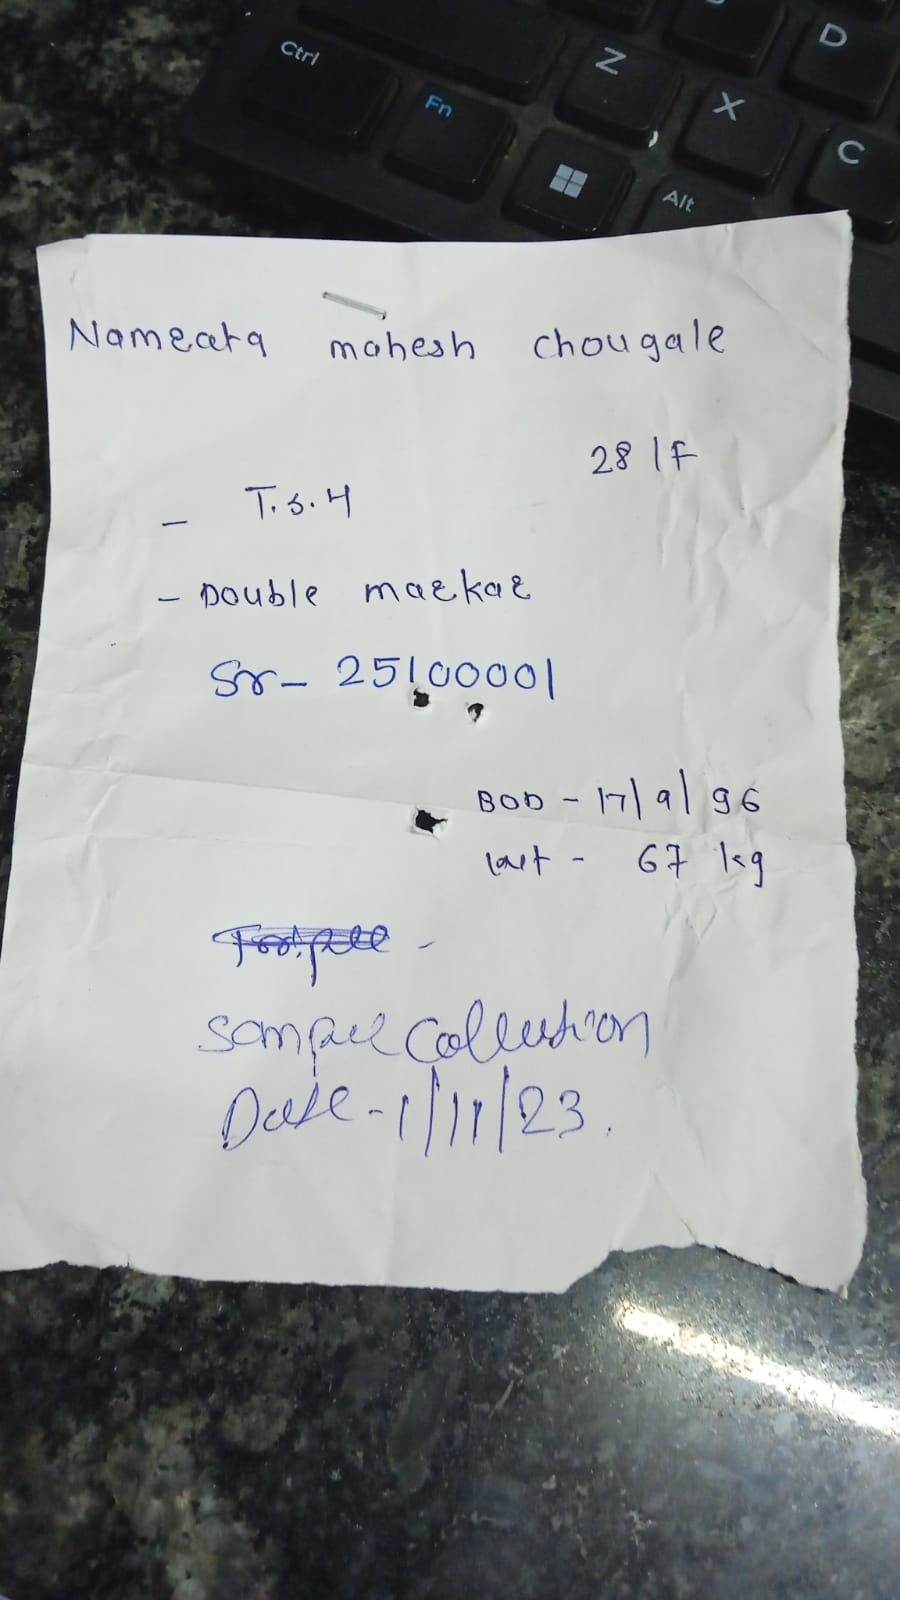 Ctrl
Fn
Z
X
D
C
Alt
Namrata mahesh chougale
28 / F
- T.S.H
- Double markar
Sr- 25100001
BOD - 17/9/96
67 kg
Sample Collection
Date - 1/11/23.